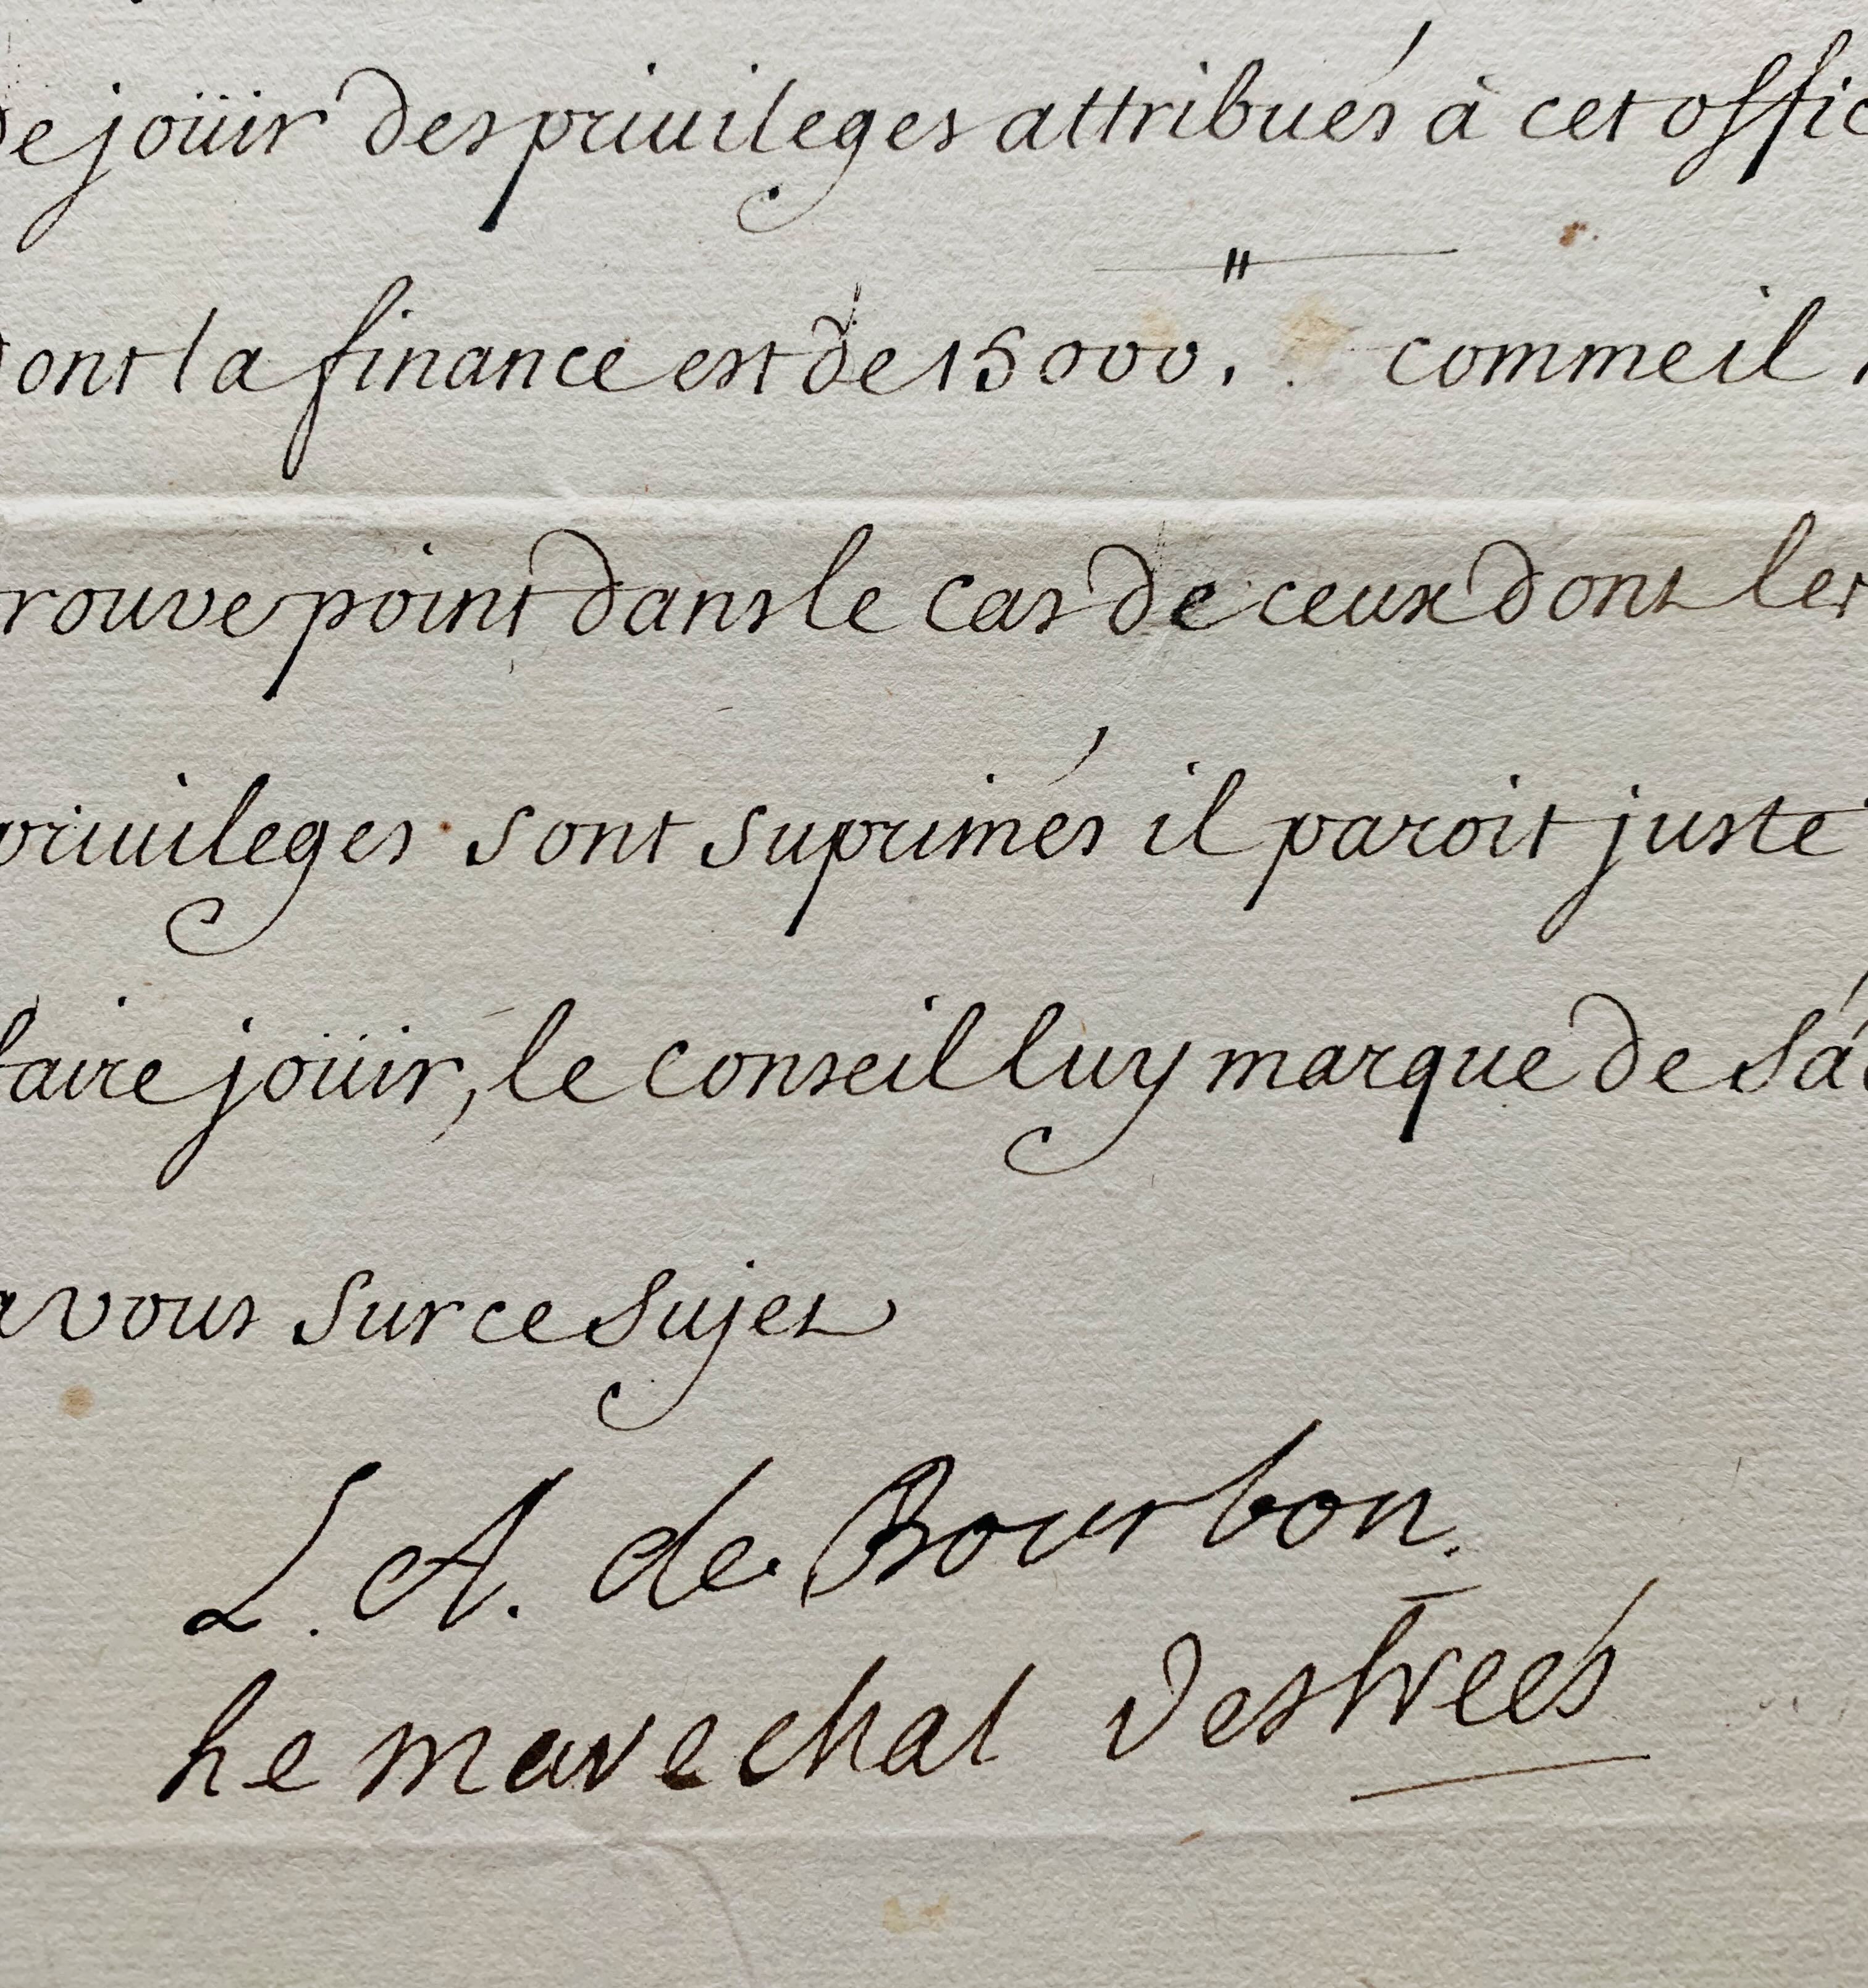 de joüir des priuileges attribués à cet offic
dont la finance est de 15000." comme il
rouve point dans le cas de ceux dont les
priuileges sont suprimés il paroit juste
faire joüir, le conseil luy marque de s'a
a vous sur ce sujet
L. A. de Bourbon.
Le marechal Destrées